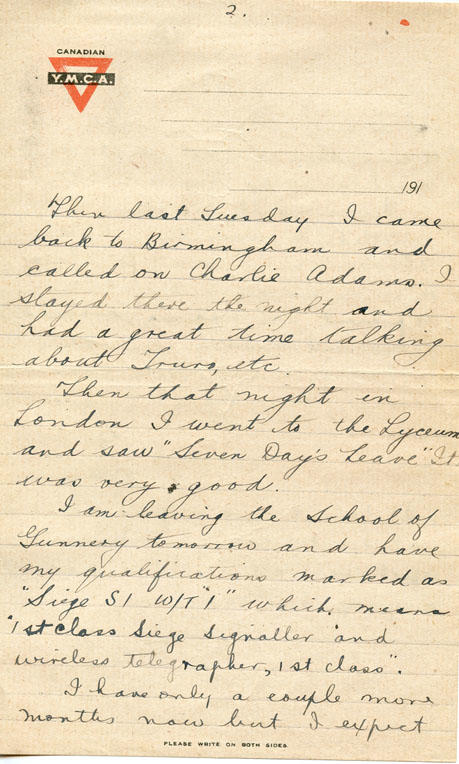 2.
CANADIAN
Y.M.C.A.
191
Then last Tuesday I came
back to Birmingham and
called on Charlie Adams. I
stayed there the night and
had a great time talking
about Truro, etc.
Then that night in
London I went to the Lyceum
and saw "Seven Day's Leave" It
was very good.
I am leaving the School of
Gunnery tomorrow and have
my qualifications marked as
"Siege S1 W/T 1" which means
"1st Class Siege Signaller and
wireless telegrapher, 1st class".
I have only a couple more
months now but I expect
PLEASE WRITE ON BOTH SIDES